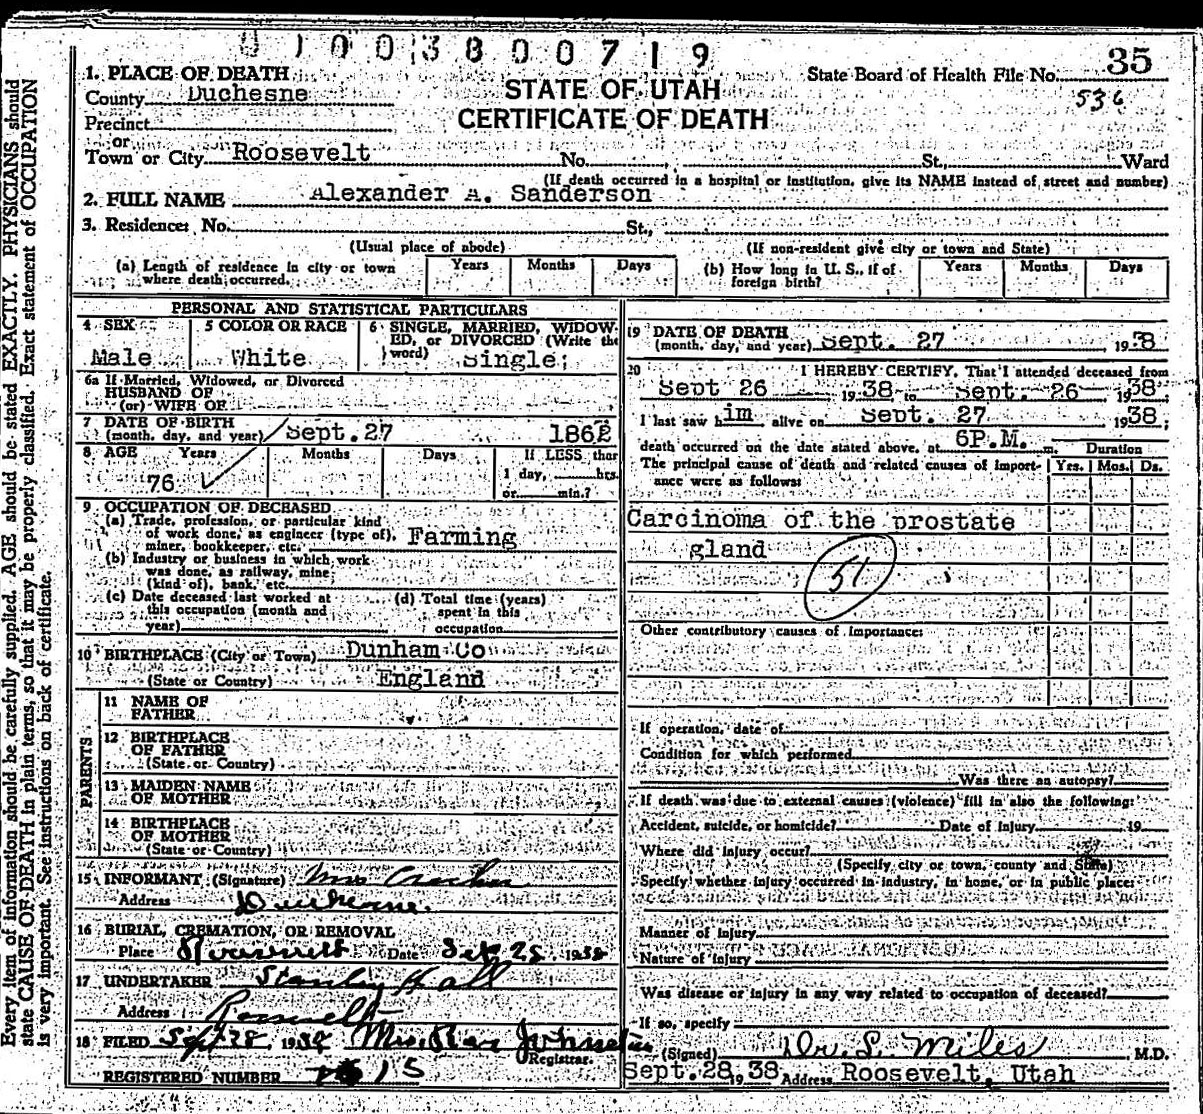 0 1 0 0 3 8 0 0 7 1 9
1. PLACE OF DEATH
County Duchesne
Precinct
or
Town or City Roosevelt No. , St., Ward
STATE OF UTAH
CERTIFICATE OF DEATH
State Board of Health File No. 35
536
(If death occurred in a hospital or institution, give its NAME instead of street and number)
2. FULL NAME Alexander A. Sanderson
3. Residence: No. St.,
(Usual place of abode) (If non-resident give city or town and State)
(a) Length of residence in city or town where death occurred. Years Months Days
(b) How long in U. S., if of foreign birth? Years Months Days
PERSONAL AND STATISTICAL PARTICULARS
4 SEX Male
5 COLOR OR RACE White
6 SINGLE, MARRIED, WIDOW-
ED, or DIVORCED (Write the
word) Single;
6a If Married, Widowed, or Divorced
HUSBAND OF
(or) WIFE OF
7 DATE OF BIRTH
(month, day, and year) Sept. 27 1862
8 AGE Years Months Days If LESS than
76 1 day, hrs.
or min.?
9 OCCUPATION OF DECEASED
(a) Trade, profession, or particular kind
of work done, as engineer (type of), Farming
miner, bookkeeper, etc.
(b) Industry or business in which work
was done, as railway, mine
(kind of), bank, etc.
(c) Date deceased last worked at
this occupation (month and
year)
(d) Total time (years)
spent in this
occupation
10 BIRTHPLACE (City or Town) Dunham Co
(State or Country) England
PARENTS
11 NAME OF
FATHER
12 BIRTHPLACE
OF FATHER
(State or Country)
13 MAIDEN NAME
OF MOTHER
14 BIRTHPLACE
OF MOTHER
(State or Country)
15 INFORMANT (Signature) Mrs
Address Duchesne.
16 BURIAL, CREMATION, OR REMOVAL
Place Roosevelt Date Sep 28 1938
17 UNDERTAKER Stanley Hall
Address Roosevelt
18 FILED Sept 28, 1938 Mrs. Johnston
Registrar.
REGISTERED NUMBER 15
19 DATE OF DEATH
(month, day, and year) Sept. 27 1938
20 I HEREBY CERTIFY, That I attended deceased from
Sept 26 1938 to Sept. 26 1938.
I last saw him alive on Sept. 27 1938;
death occurred on the date stated above, at 6P.M. m. Duration
The principal cause of death and related causes of import- Yrs. Mos. Ds.
ance were as follows:
Carcinoma of the prostate
gland
51
Other contributory causes of importance:
If operation, date of
Condition for which performed
Was there an autopsy?
If death was due to external causes (violence) fill in also the following:
Accident, suicide, or homicide? Date of injury 19
Where did injury occur?
(Specify city or town, county and State)
Specify whether injury occurred in industry, in home, or in public place:
Manner of Injury
Nature of Injury
Was disease or injury in any way related to occupation of deceased?
If so, specify
(Signed) Dr. L. Miles M.D.
Sept. 28 19 38 Address Roosevelt, Utah
Every item of information should be carefully supplied. AGE should be stated EXACTLY. PHYSICIANS should
state CAUSE OF DEATH in plain terms, so that it may be properly classified. Exact statement of OCCUPATION
is very important. See instructions on back of certificate.